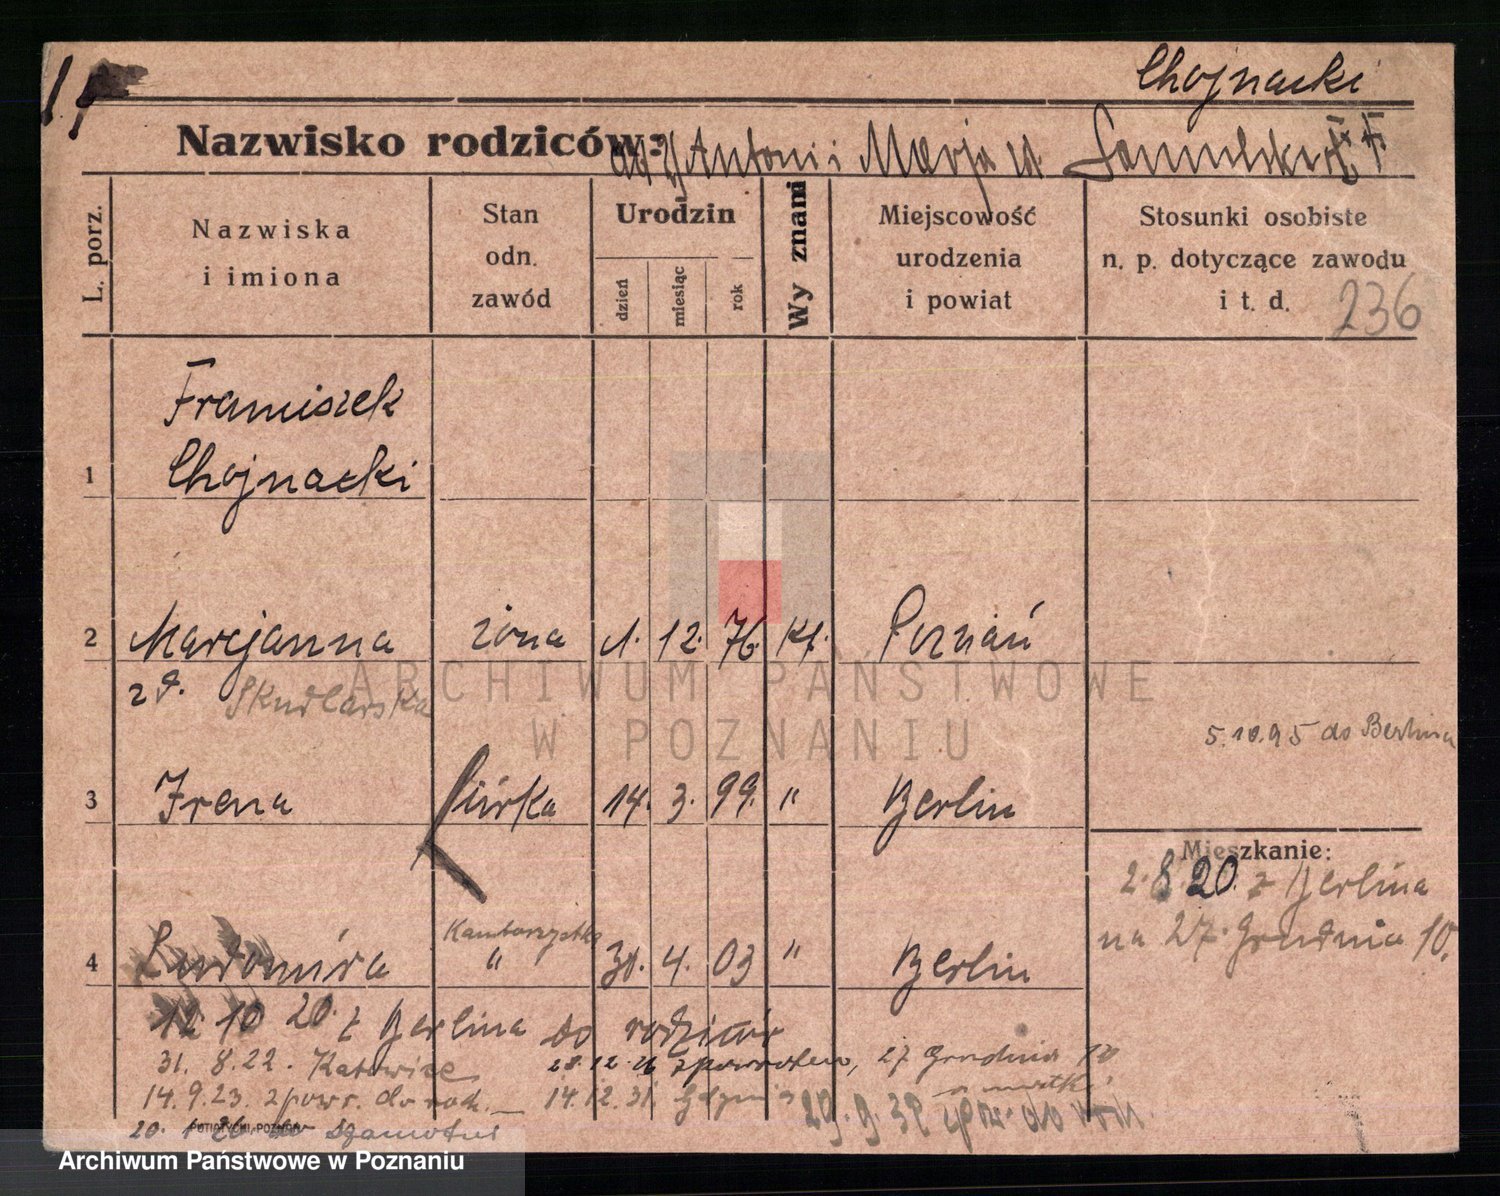 Chojnacki
Nazwisko rodziców: Antoni i Marja
L. porz.
Nazwiska i imiona
Stan odn. zawód
Urodzin
dzień
miesiąc
rok
Wy znani
Miejscowość urodzenia i powiat
Stosunki osobiste n. p. dotyczące zawodu i t. d.
236
Franciszek
1 Chojnacki
2 Marcjanna żona 1. 12. 76. kt. Poznań
Skudlarska
5.10.95 do Berlina
3 Irena córka 14. 3. 99. " Berlin
Mieszkanie:
2.8.20. z Berlina
na 27. Grudnia 10.
Kantorzystka
4 Ludomira " 30. 4. 03 " Berlin
12 10 20. z Berlina do rodziców
31. 8. 22. Katowice 28.12.26 zpowrotem, 27 Grudnia 10
14.9.23. zpowr. do rodz. 14.12.31. Gdynia
29.9.32 zpow. do rodz.
20. Szamotuł
ARCHIWUM PAŃSTWOWE
W POZNANIU
Archiwum Państwowe w Poznaniu